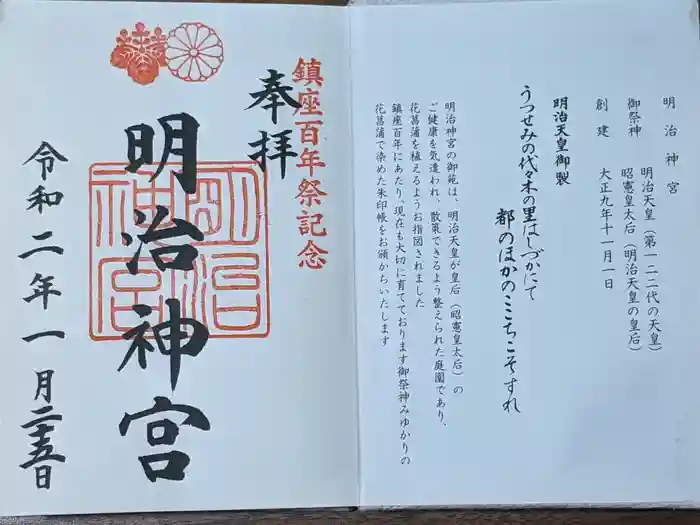 明治神宮
御祭神　明治天皇（第一二二代の天皇）
昭憲皇太后（明治天皇の皇后）
創建　大正九年十一月一日
明治天皇御製
うつせみの代々木の里はしづかにて
都のほかのここちこそすれ
明治神宮の御苑は、明治天皇が皇后（昭憲皇太后）の
ご健康を気遣われ、散策できるよう整えられた庭園であり、
花菖蒲を植えるようお指図されました
鎮座百年にあたり、現在も大切に育てております御祭神みゆかりの
花菖蒲で染めた朱印帳をお頒かちいたします
鎮座百年祭記念
奉拝
明治神宮
明治
神宮
令和二年一月二十五日